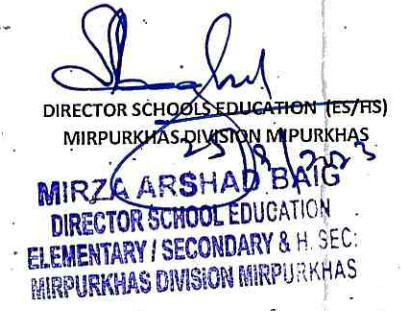 DIRECTOR SCHOOLS EDUCATION (ES/HS)
MIRPURKHAS DIVISION MIPURKHAS
MIRZA ARSHAD BAIG
DIRECTOR SCHOOL EDUCATION
ELEMENTARY / SECONDARY & H. SEC:
MIRPURKHAS DIVISION MIRPURKHAS